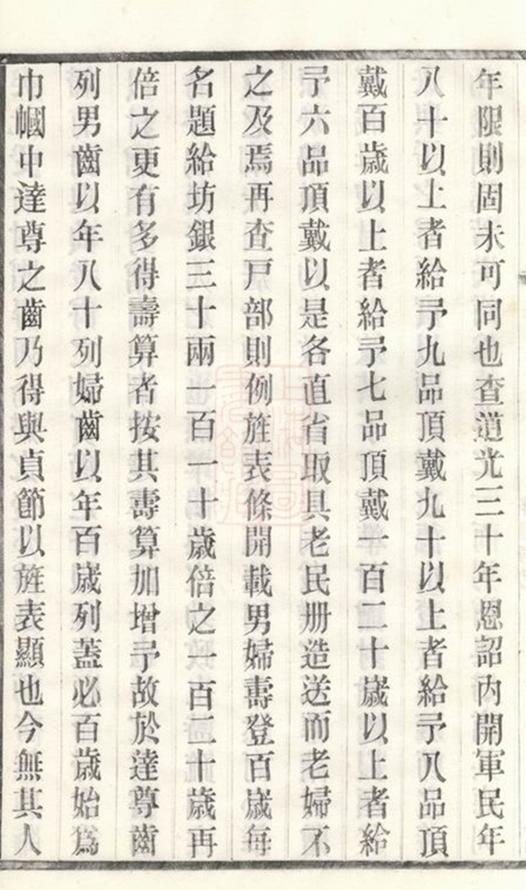 年限則固未可同也查道光三十年恩詔內開軍民年
八十以上者給予九品頂戴九十以上者給予八品頂
戴百歲以上者給予七品頂戴一百二十歲以上者給
予六品頂戴以是各直省取具老民册造送而老婦不
之及焉再查戸部則例旌表條開載男婦壽登百歲每
名題給坊銀三十兩一百一十歲倍之一百二十歲再
倍之更有多得壽算者按其壽算加增予故於達尊齒
列男齒以年八十列婦齒以年百歲列蓋必百歲始爲
巾幗中達尊之齒乃得與貞節以旌表顯也今無其人